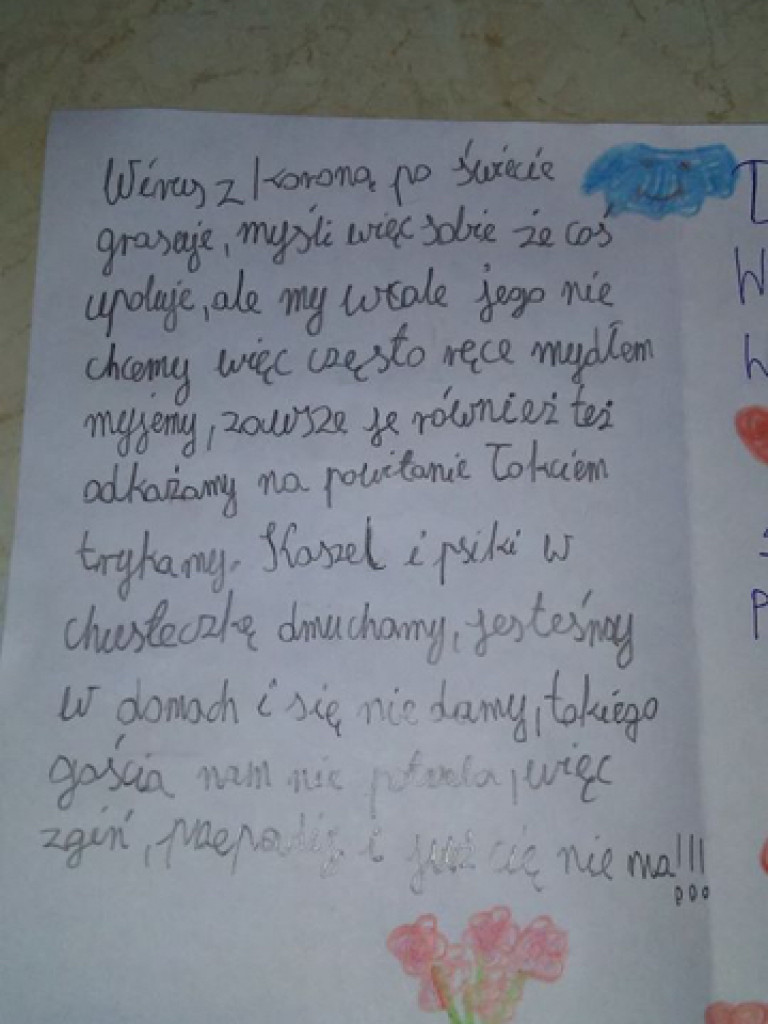 Wirus z koroną po świecie
grasuje, myśli więc sobie że coś
upoluje, ale my wcale jego nie
chcemy więc często ręce mydłem
myjemy, zawsze je również też
odkażamy na powitanie łokciem
trykamy. Kaszel i psiki w
chusteczkę dmuchamy, jesteśmy
w domach i się nie damy, takiego
gościa nam nie potrzeba, więc
zgiń, przepadnij i już cię nie ma!!!